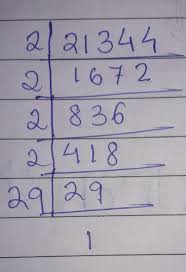 2 21344
2 1672
2 836
2 418
29 29
1